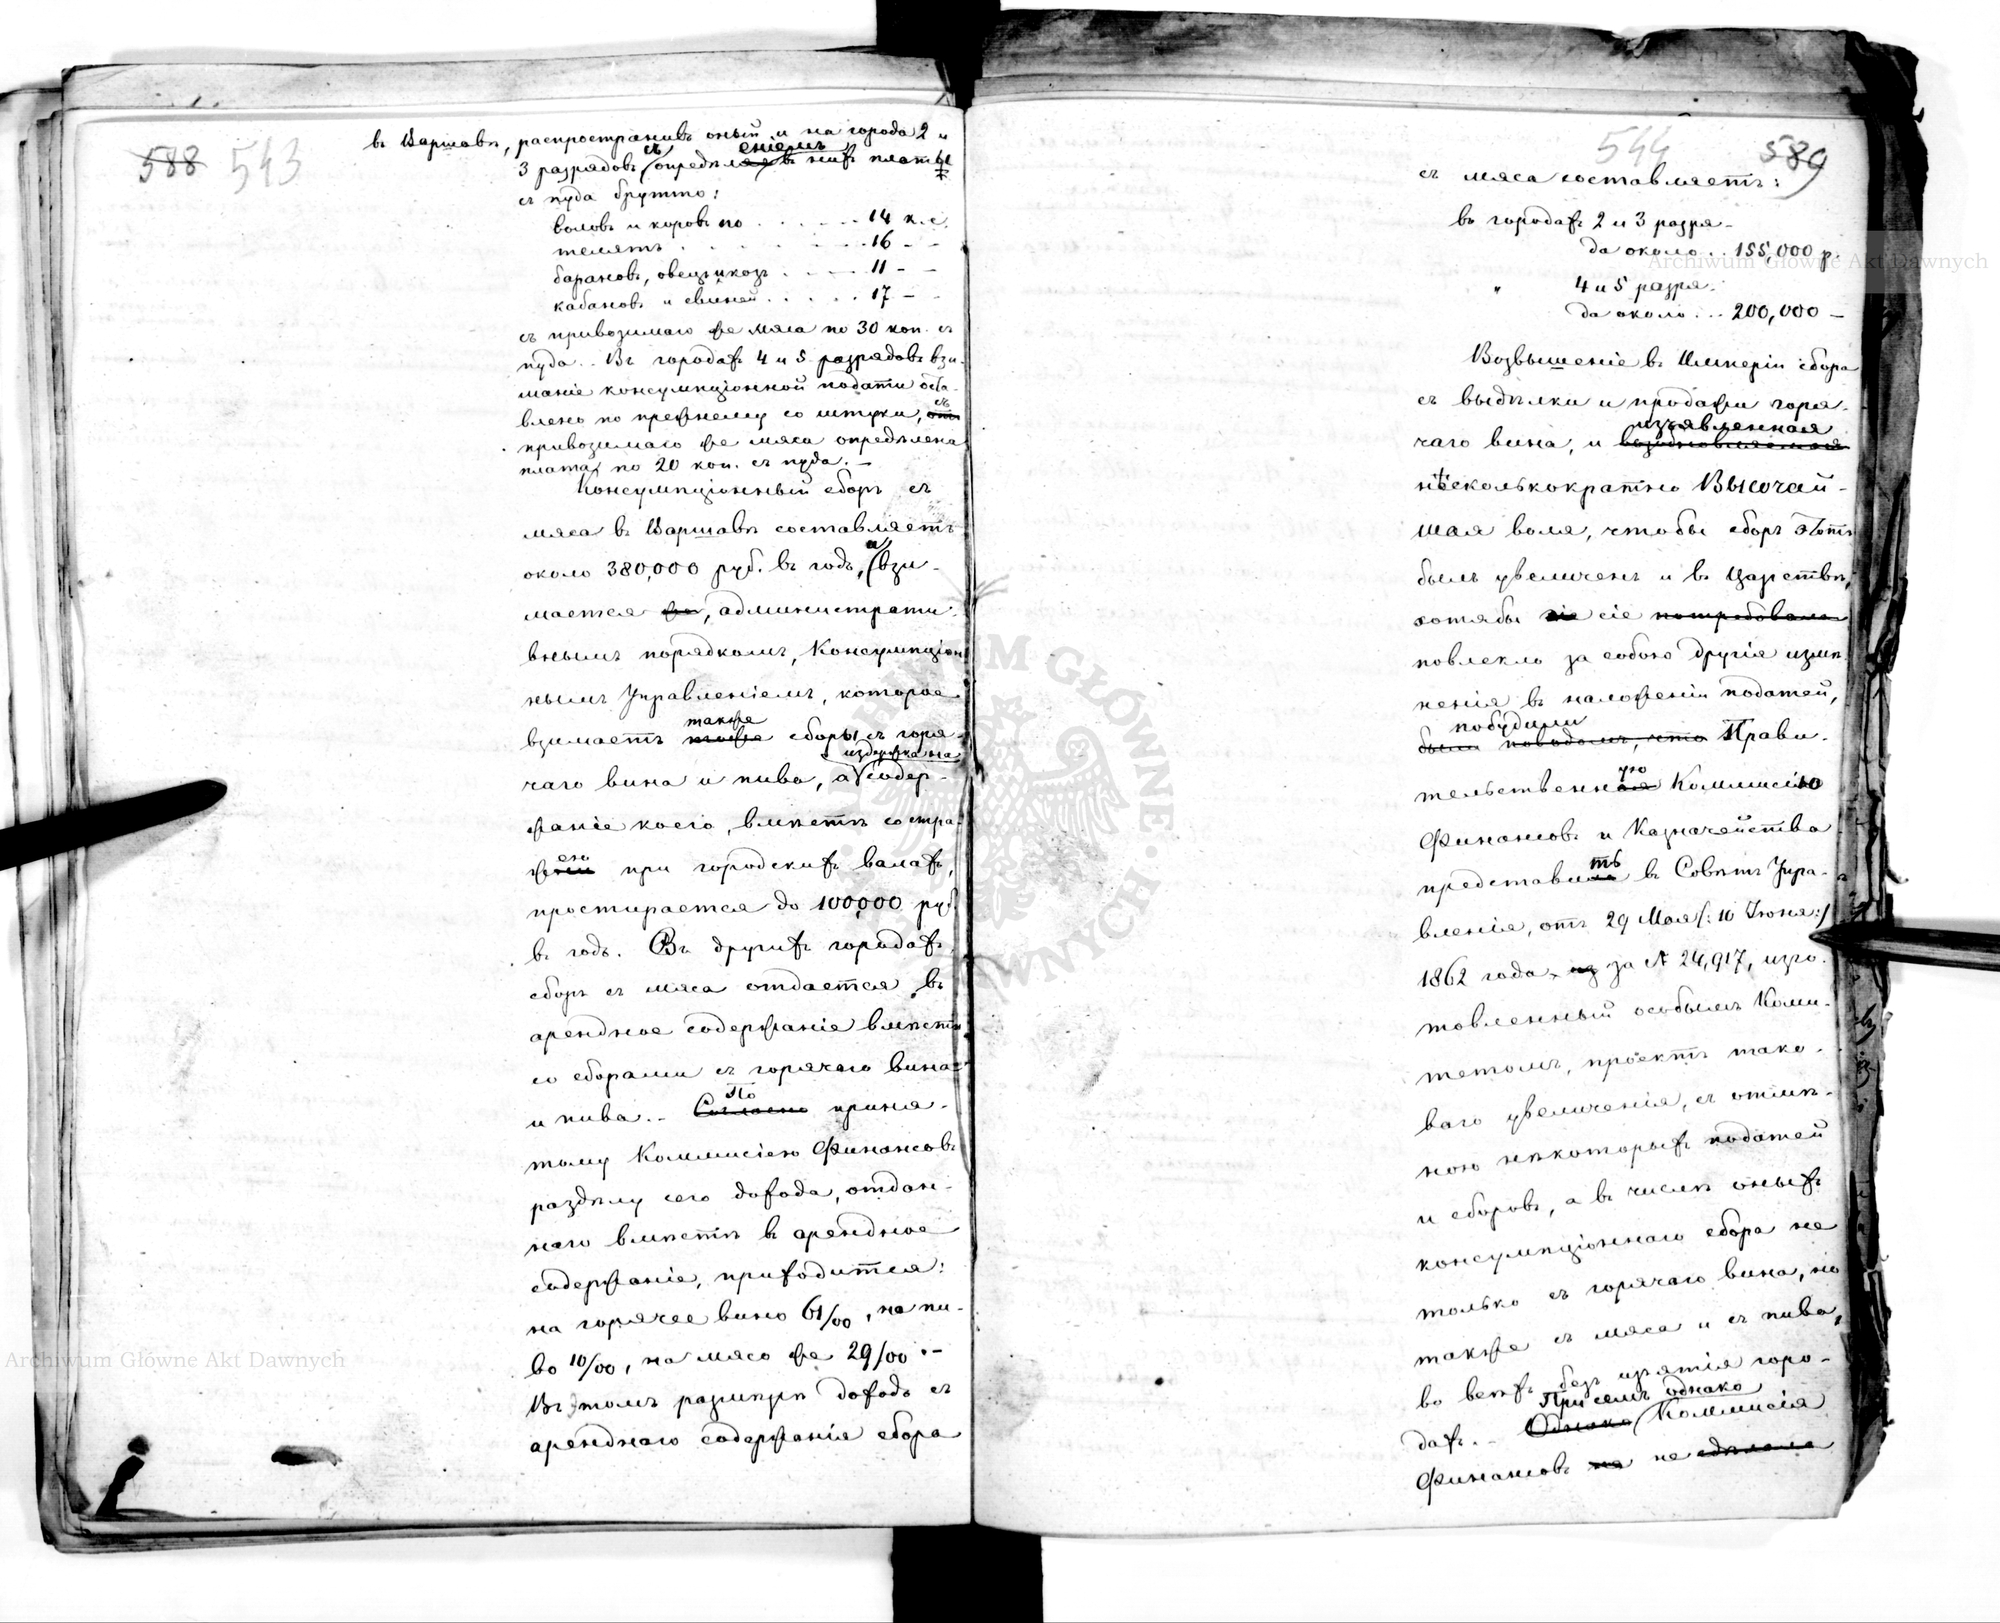 588 543
въ Варшавѣ, распространивъ оный и на города 2 и
3 разрядовъ съ опредѣленіемъ въ нихъ платы
съ пуда брутто:
воловъ и коровъ по . . . . . 14 к. с.
телятъ . . . . . . 16 - -
барановъ, овецъ и козъ . . . . 11 - -
кабановъ и свиней . . . . . 17 - -
съ привозимаго же мяса по 30 коп. съ
пуда. Въ городахъ 4 и 5 разрядовъ взи-
маніе консумпціонной подати оста-
влено по прежнему со штуки, съ
привозимаго же мяса опредѣлена
плата по 20 коп. съ пуда. —
Консумпціонный сборъ съ
мяса въ Варшавѣ составляетъ
около 380,000 руб. въ годъ, и взи-
мается, администрати-
внымъ порядкомъ, Консумпціон-
нымъ Управленіемъ, которое
взимаетъ также сборы съ горя-
чаго вина и пива, а издержка на содер-
жаніе коего, вмѣстѣ со стра-
жею при городскихъ валахъ,
простирается до 100,000 руб.
въ годъ. Въ другихъ городахъ
сборъ съ мяса отдается въ
арендное содержаніе вмѣстѣ
со сборами съ горячаго вина
и пива. — По приня-
тому Коммисіею Финансовъ
раздѣлу сего дохода, отдан-
наго вмѣстѣ въ арендное
содержаніе, приходится:
на горячее вино 61/00, на пи-
во 10/00, на мясо же 29/00. —
Въ томъ размѣрѣ доходъ съ
аренднаго содержанія сбора
544 589
съ мяса составляетъ:
въ городахъ 2 и 3 разря-
да около . . 155,000 р.
" 4 и 5 разря-
да около . . . 200,000 —
Возвышеніе въ Имперіи сбора
съ выдѣлки и продажи горя-
чаго вина, и изъявленная
нѣсколькократно Высочай-
шая воля, чтобы сборъ этотъ
былъ увеличенъ и въ Царствѣ,
хотябы сіе
повлекло за собою другія измѣ-
ненія въ наложеніи податей,
побудили Прави-
тельственную Коммисію
Финансовъ и Казначейства
представить въ Совѣтъ Упра-
вленія, отъ 29 Мая /:10 Іюня:/
1862 года за № 24,917, изго-
товленный особымъ Коми-
тетомъ, проектъ тако-
ваго увеличенія, съ отмѣ-
ною нѣкоторыхъ податей
и сборовъ, а въ числѣ оныхъ
консумпціоннаго сбора не
только съ горячаго вина, но
также съ мяса и съ пива,
во всѣхъ безъ изъятія горо-
дахъ. — При семъ однако Коммисія
Финансовъ не
Archiwum Główne Akt Dawnych
Archiwum Główne Akt Dawnych
ARCHIWUM GŁÓWNE AKT DAWNYCH